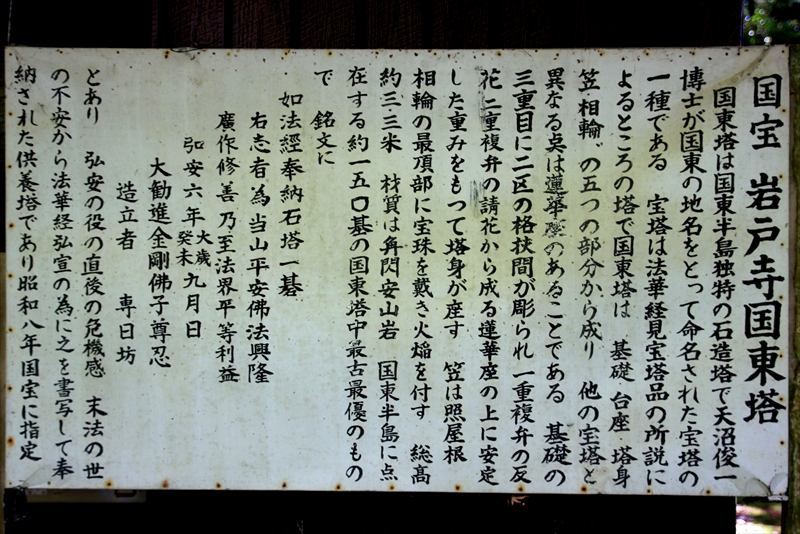 国宝 岩戸寺国東塔
国東塔は国東半島独特の石造塔で天沼俊一
博士が国東の地名をとって命名された宝塔の
一種である 宝塔は法華経見宝塔品の所説に
よるところの塔で国東塔は 基礎 台座 塔身
笠 相輪 の五つの部分から成り 他の宝塔と
異なる点は蓮華座のあることである 基礎の
三重目に二区の格狭間が彫られ 一重複弁の反
花 二重複弁の請花から成る蓮華座の上に安定
した重みをもって塔身が座す 笠は照屋根
相輪の最頂部に宝珠を戴き火焔を付す 総高
約三.三米 材質は角閃安山岩 国東半島に点
在する約一五〇基の国東塔中最古最優のもの
で 銘文に
如法經奉納石塔一基
右志者為当山平安佛法興隆
廣作修善乃至法界平等利益
弘安六年大歳癸未九月日
大勧進金剛佛子尊忍
造立者 専日坊
とあり 弘安の役の直後の危機感 末法の世
の不安から法華経弘宣の為に之を書写して奉
納された供養塔であり昭和八年国宝に指定